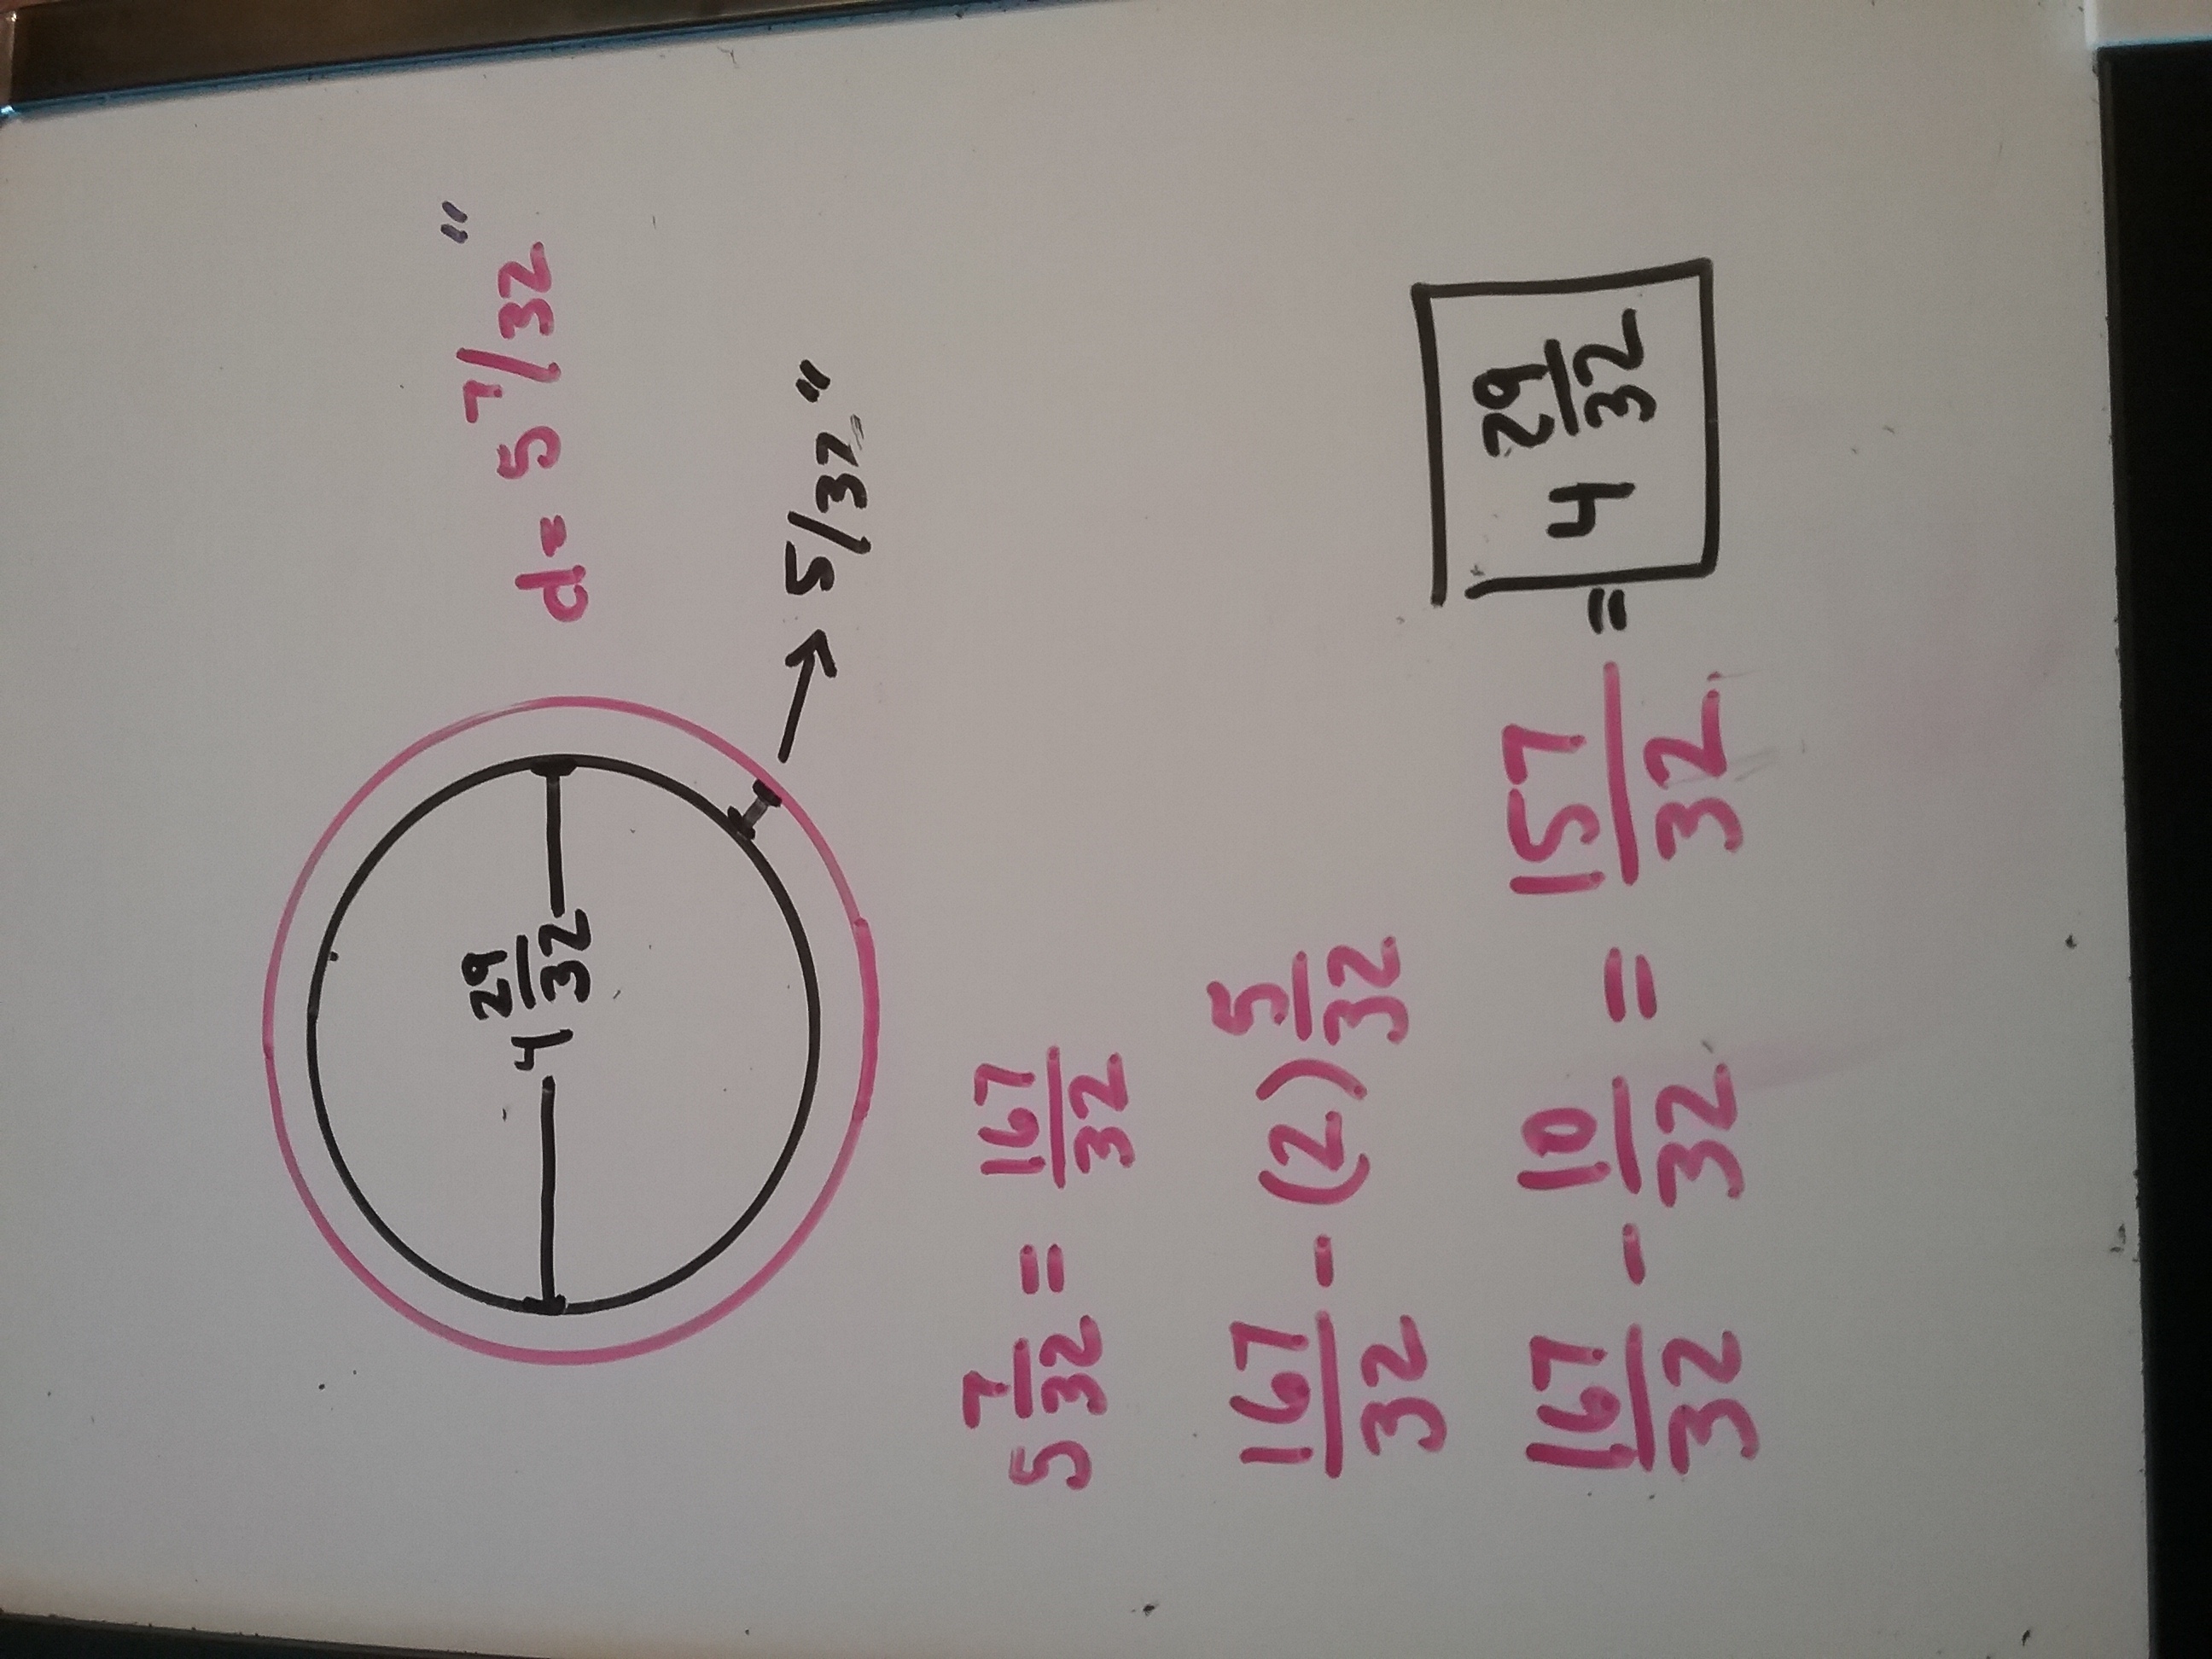 d = 5 7/32"
4 29/32
→ 5/32"
5 7/32 = 167/32
167/32 - (2) 5/32
167/32 - 10/32 = 157/32 = 4 29/32